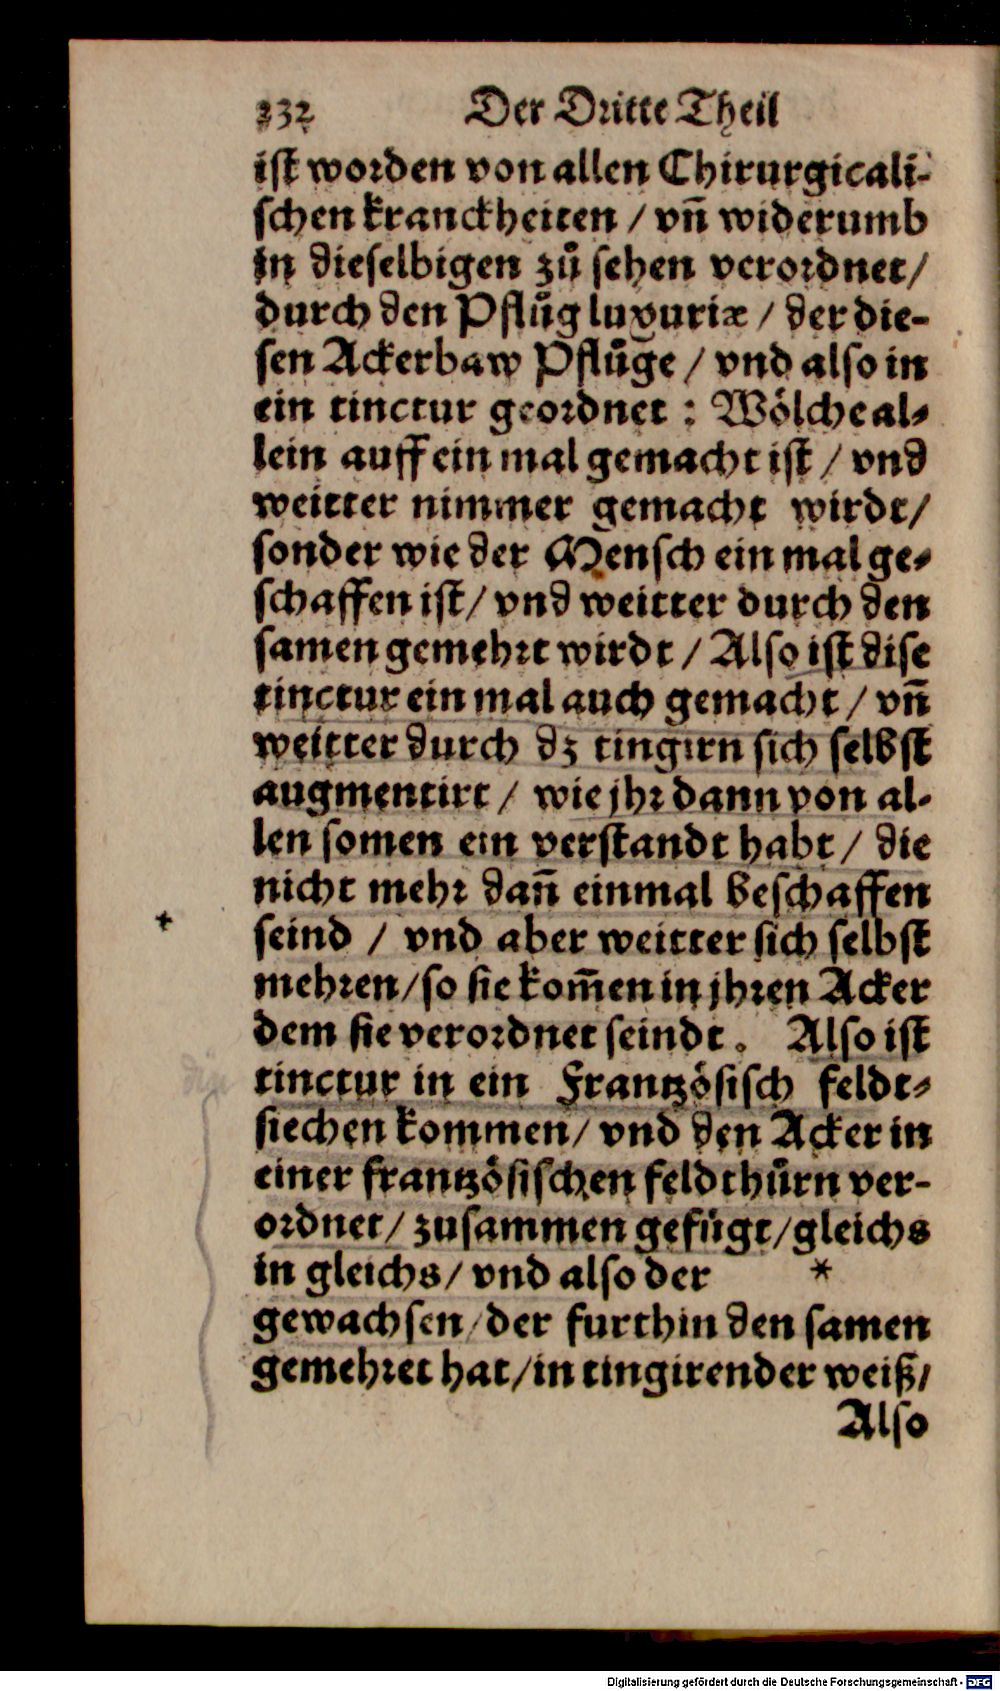 232 Der Dritte Theil
ist worden von allen Chirurgicali-
schen kranckheiten / vñ widerumb
in dieselbigen zů sehen verordnet /
durch den Pflůg luxuriæ / der die-
sen Ackerbaw Pflůge / vnd also in
ein tinctur geordnet : Wölche al-
lein auff ein mal gemacht ist / vnd
weitter nimmer gemacht wirdt /
sonder wie der Mensch ein mal ge-
schaffen ist / vnd weitter durch den
samen gemehrt wirdt / Also ist dise
tinctur ein mal auch gemacht / vñ
weitter durch dz tingirn sich selbst
augmentirt / wie jhr dann von al-
len somen ein verstandt habt / die
nicht mehr dañ einmal beschaffen
seind / vnd aber weitter sich selbst
mehren / so sie kom̃en in jhren Acker
dem sie verordnet seindt. Also ist
tinctur in ein Frantzösisch feldt-
siechen kommen / vnd den Acker in
einer frantzösischen feldthůrn ver-
ordnet / zusammen gefügt / gleichs
in gleichs / vnd also der *
gewachsen / der furthin den samen
gemehret hat / in tingirender weiß /
Also
Digitalisierung gefördert durch die Deutsche Forschungsgemeinschaft - DFG